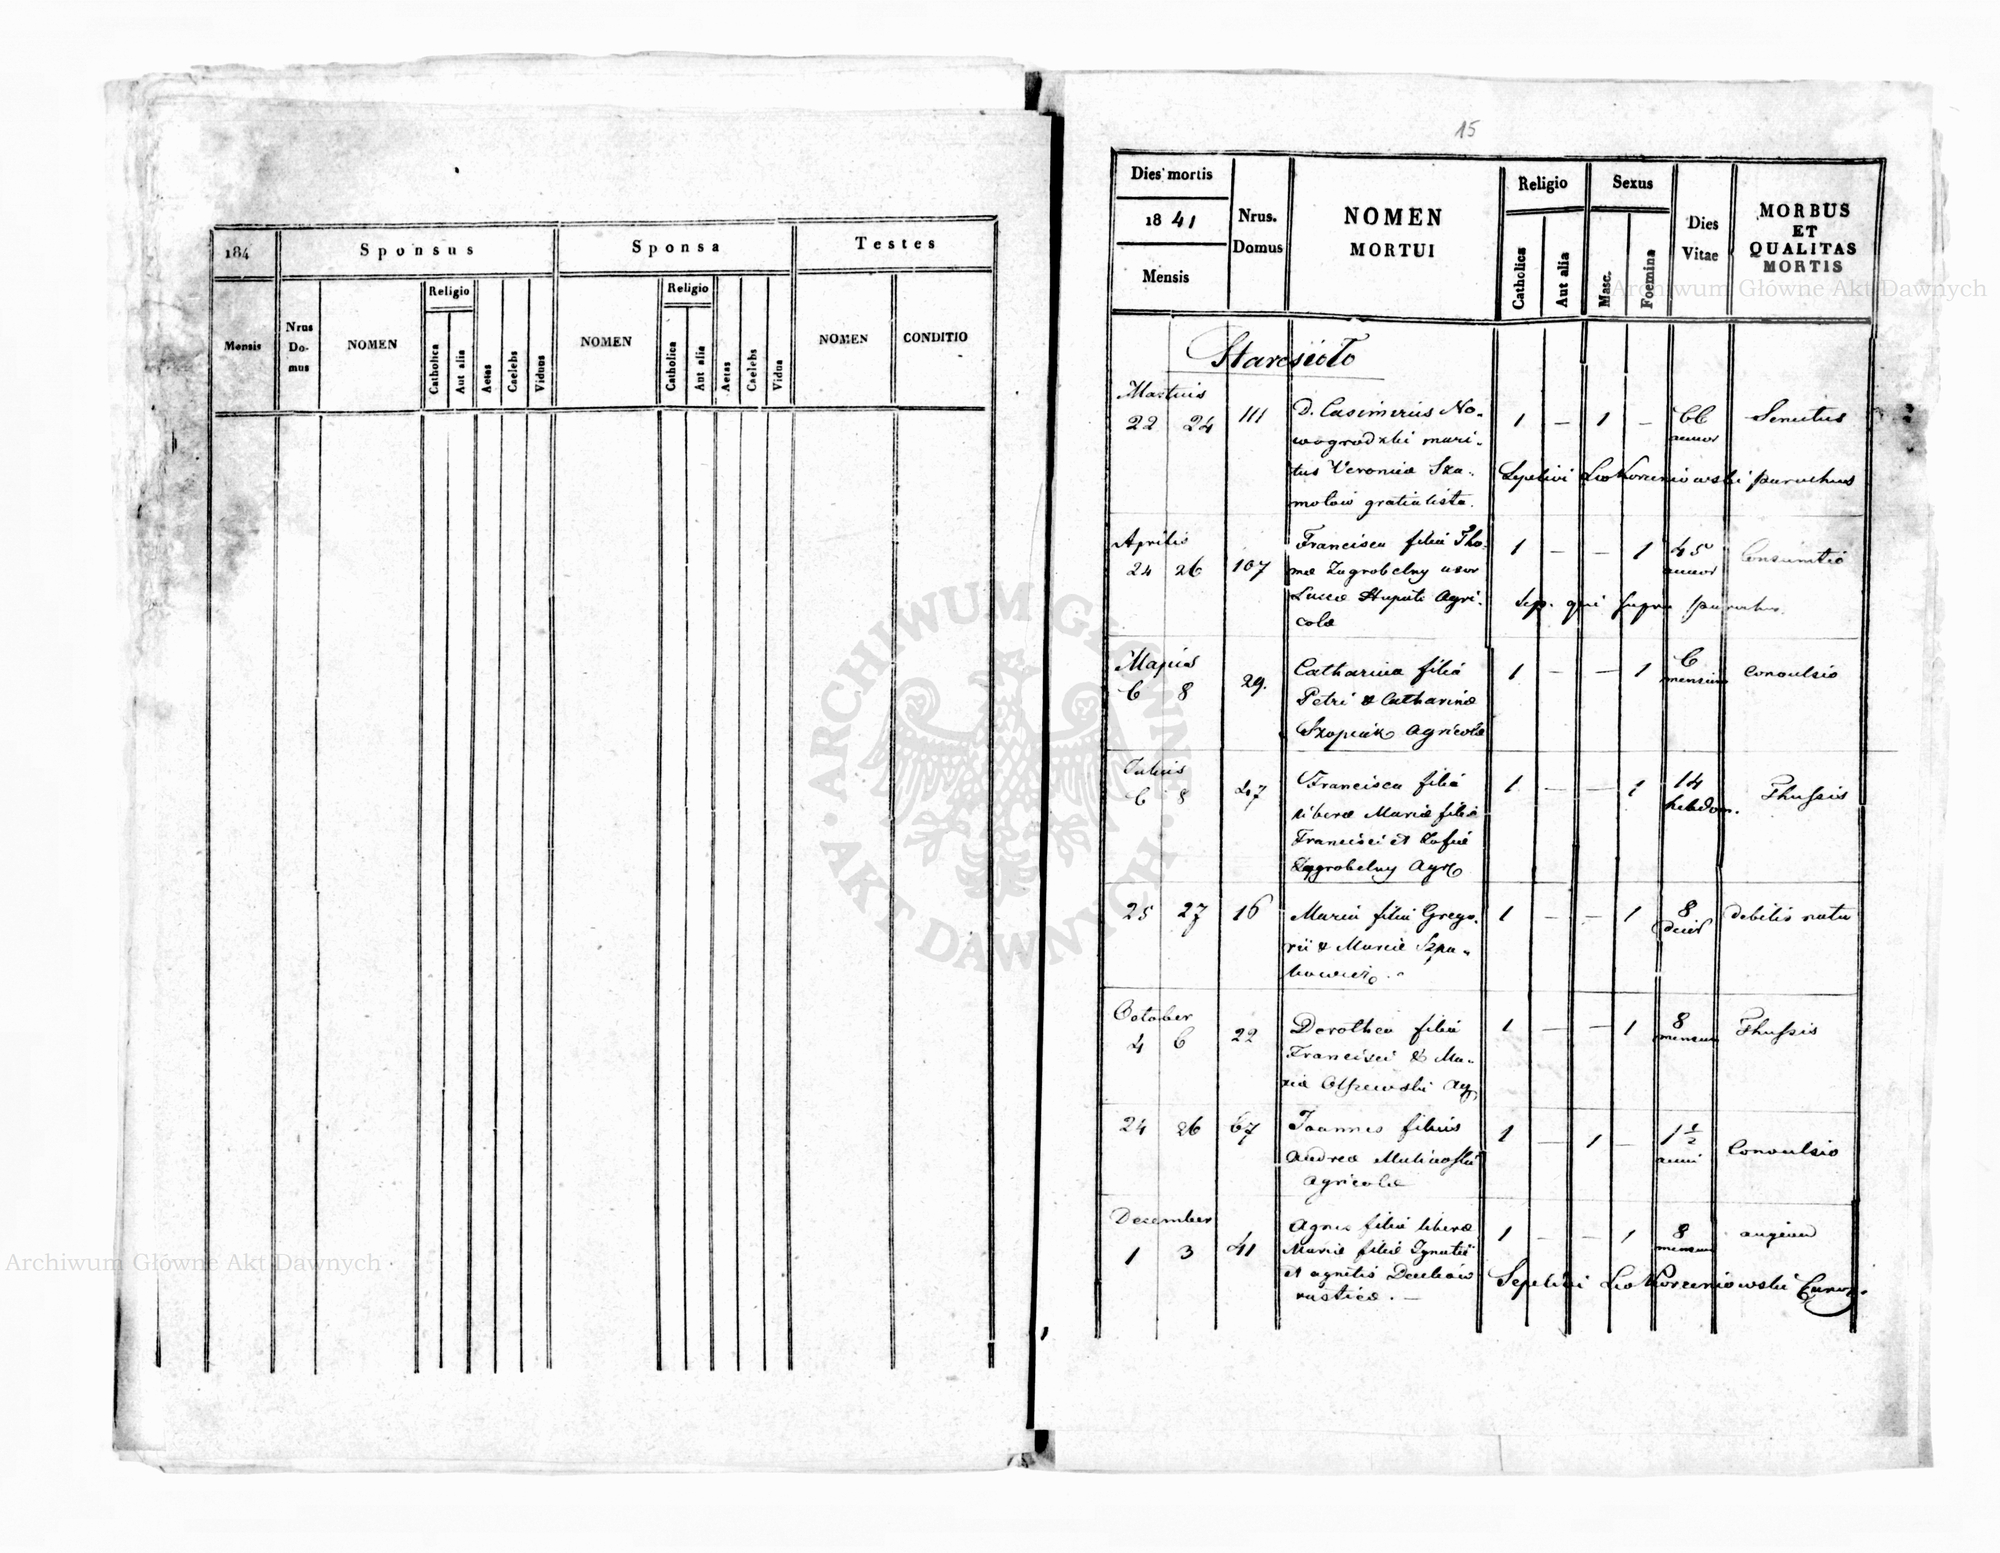 184
Sponsus
Sponsa
Testes
Mensis
Nrus Do- mus
NOMEN
Religio
Catholica
Aut alia
Aetas
Caelebs
Viduus
NOMEN
Religio
Catholica
Aut alia
Aetas
Caelebs
Vidua
NOMEN
CONDITIO
15
Dies mortis
1841
Mensis
Nrus. Domus
NOMEN
MORTUI
Religio
Catholica
Aut alia
Sexus
Masc.
Foemina
Dies
Vitae
MORBUS
ET
QUALITAS
MORTIS
Archiwum Główne Akt Dawnych
Staresioło
Martius
22 24 111 D. Casimirus No- 1 – 1 – 66 annor Senectus
wogrodzki mari-
tus Veronica
Sepelivi Leo Korzeniowski parochus
gratialista.
Aprilis
24 26 107 Francisca filia Tho- 1 – – 1 45 annor Consumtio
mae Zagrobelny uxor
Lucae Agri-
colae
Sep. qui supra parochus.
Majus
6 8 29. Catharina filia 1 – – 1 6 mensium Convulsio
Petri & Catharinae
Szopiak Agricolae
Julius
6 8 27 Francisca filia 1 – – 1 14 hebdom. Thussis
liberae Mariae filiae
Francisci et Zofiae
Zagrobelny Agr
25 27 16 Maria filia Grego- 1 – – 1 8 dies debilis nata
rii & Mariae
October
4 6 22 Dorothea filia 1 – – 1 8 mensium Thussis
Francisci & Ma-
riae Olszewski Agr
24 26 67 Joannes filius 1 – 1 – 1 1/2 anni Convulsio
Andreae
Agricolae
December
1 3 41 Agnes filia liberae 1 – – 1 8 mensium angina
Mariae filiae Ignatii
et Agnetis
rusticae. –
Sepelivi Leo Korzeniowski
ARCHIWUM GŁÓWNE AKT DAWNYCH
Archiwum Główne Akt Dawnych